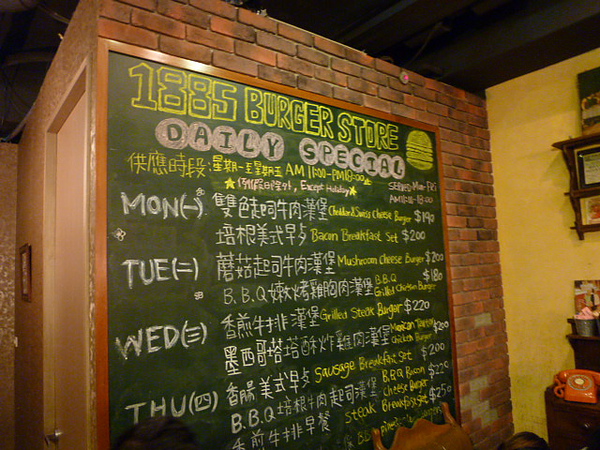 1885 BURGER STORE
DAILY SPECIAL
供應時段:星期一至星期五 AM11:00-PM18:00
SERVED Mon-Fri
AM11:00-18:00
★(例假日除外, Except Holiday)★
MON(一) 雙色起司牛肉漢堡 Cheddar&Swiss Cheese Burger $190
培根美式早歺 Bacon Breakfast Set $200
TUE(二) 蘑菇起司牛肉漢堡 Mushroom Cheese Burger $200
B.B.Q嫩烤雞胸肉漢堡 B.B.Q Grilled Chicken Burger $180
WED(三) 香煎牛排漢堡 Grilled Steak Burger $220
墨西哥塔塔酥炸雞肉漢堡 Mexican Tartar Chicken Burger $200
THU(四) 香腸美式早歺 Sausage Breakfast Set $200
B.B.Q培根牛肉起司漢堡 B.B.Q Bacon Cheese Burger $220
香煎牛排早餐 Steak Breakfast Set $250